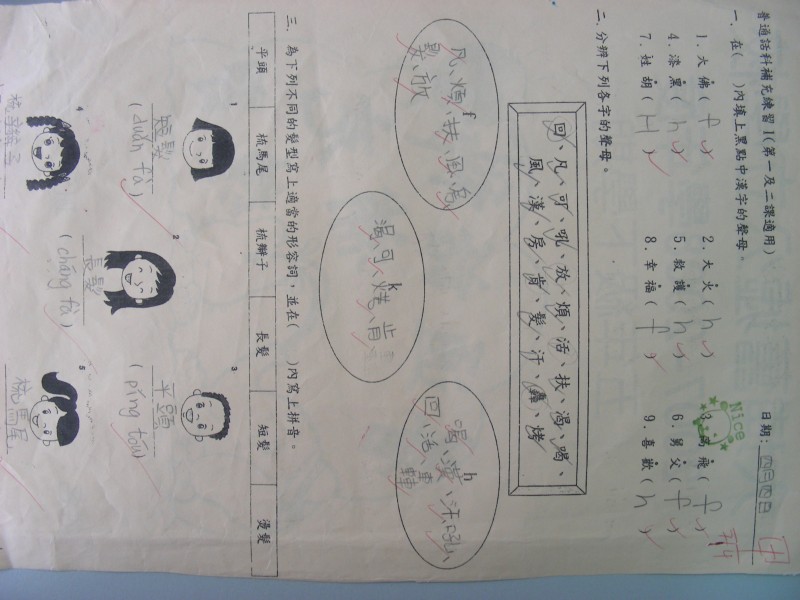 普通話科補充練習1(第一及二課適用)
日期：四月四日
一. 在(　)內填上黑點中漢字的聲母。
1. 大佛( f ) 2. 大火( h ) 3. 高飛( f )
4. 漆黑( h ) 5. 救護( h ) 6. 舅父( f )
7. 姓胡( H ) 8. 幸福( f ) 9. 喜歡( h )
Nice
二. 分辨下列各字的聲母。
回、凡、可、吼、放、煩、活、扶、渴、喝、
風、漢、房、肯、髮、汗、轟、烤
f
凡、煩、扶、風、房、
髮、放
k
渴、可、烤、肯
h
喝、漢、汗、吼、
回、活、轟
三. 為下列不同的髮型寫上適當的形容詞，並在(　)內寫上拼音。
平頭 梳馬尾 梳辮子 長髮 短髮 燙髮
1
短髮
(duǎn fà)
2
長髮
(cháng fà)
3
平頭
(píng tóu)
4
梳辮子
5
梳馬尾